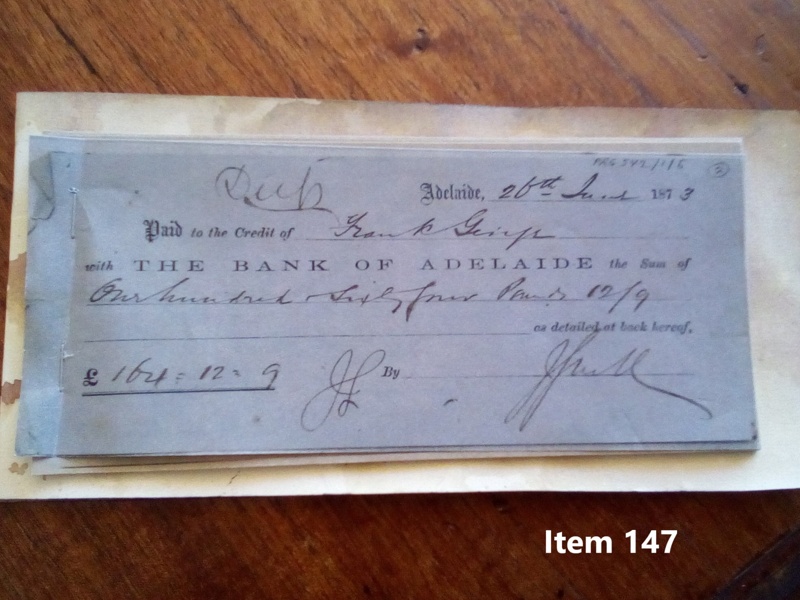 PRG 549/1/5 2
Adelaide, 26th June 1873
Paid to the Credit of Frank
with THE BANK OF ADELAIDE the Sum of
One hundred & Sixty four Pounds 12/9
as detailed at back hereof,
£ 164 = 12 = 9 By
Item 147